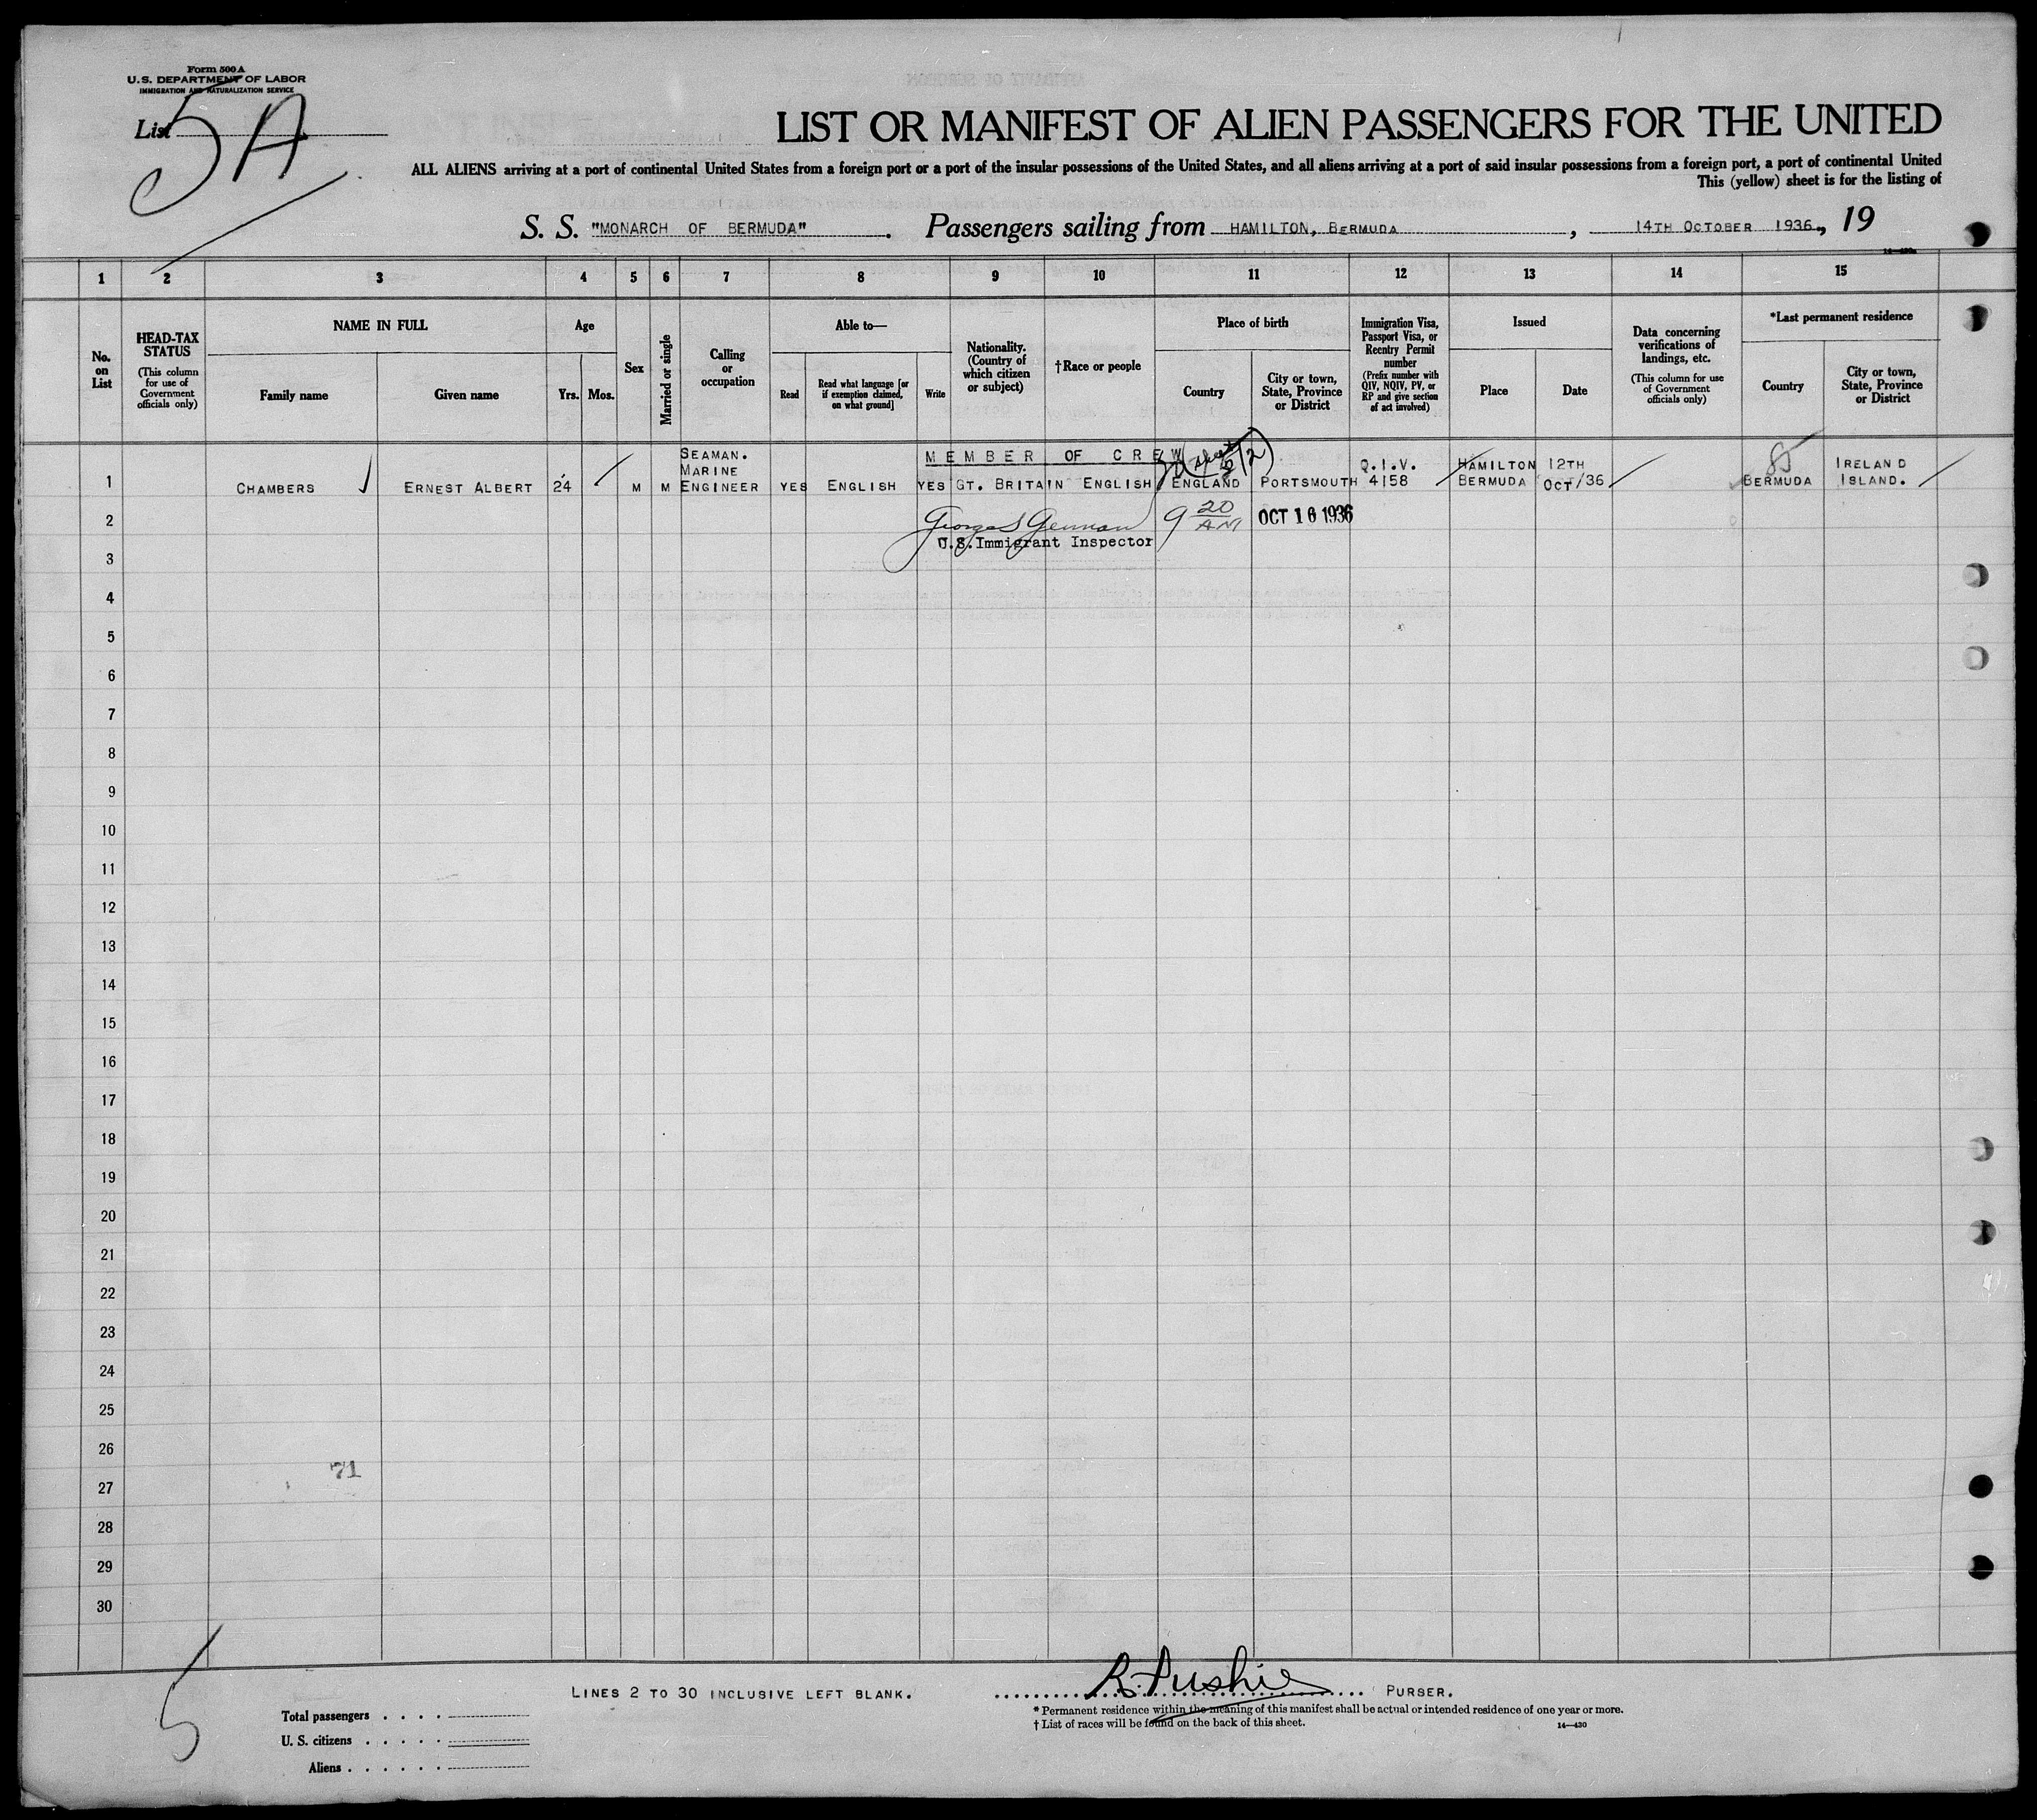 Form 500 A
U. S. DEPARTMENT OF LABOR
IMMIGRATION AND NATURALIZATION SERVICE
List 5A
LIST OR MANIFEST OF ALIEN PASSENGERS FOR THE UNITED
ALL ALIENS arriving at a port of continental United States from a foreign port or a port of the insular possessions of the United States, and all aliens arriving at a port of said insular possessions from a foreign port, a port of continental United
This (yellow) sheet is for the listing of
S. S. "MONARCH OF BERMUDA". Passengers sailing from HAMILTON, BERMUDA, 14TH OCTOBER 1936., 19
1 2 3 4 5 6 7 8 9 10 11 12 13 14 15
No. on List
HEAD-TAX STATUS
(This column for use of Government officials only)
NAME IN FULL
Family name
Given name
Age
Yrs. Mos.
Sex
Married or single
Calling or occupation
Able to—
Read
Read what language [or if exemption claimed, on what ground]
Write
Nationality. (Country of which citizen or subject)
†Race or people
Place of birth
Country
City or town, State, Province or District
Immigration Visa, Passport Visa, or Reentry Permit number
(Prefix number with QIV, NQIV, PV, or RP and give section of act involved)
Issued
Place
Date
Data concerning verifications of landings, etc.
(This column for use of Government officials only)
*Last permanent residence
Country
City or town, State, Province or District
MEMBER OF CREW
1 CHAMBERS ERNEST ALBERT 24 M M SEAMAN. MARINE ENGINEER YES ENGLISH YES GT. BRITAIN ENGLISH ENGLAND PORTSMOUTH Q.I.V. 4158 HAMILTON BERMUDA 12TH OCT/36 BERMUDA IRELAND ISLAND.
2 9 20 AM OCT 16 1936
U.S. Immigrant Inspector
3
4
5
6
7
8
9
10
11
12
13
14
15
16
17
18
19
20
21
22
23
24
25
26
71
27
28
29
30
5
LINES 2 TO 30 INCLUSIVE LEFT BLANK.
R. Pushie PURSER.
Total passengers
U. S. citizens
Aliens
* Permanent residence within the meaning of this manifest shall be actual or intended residence of one year or more.
† List of races will be found on the back of this sheet.
14—430